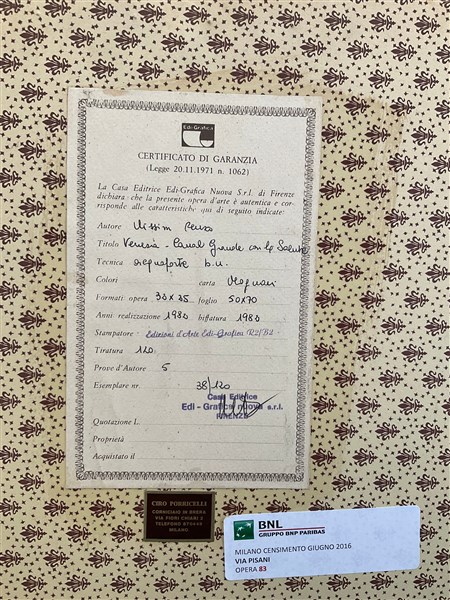 Edi-Grafica
CERTIFICATO DI GARANZIA
(Legge 20.11.1971 n. 1062)
La Casa Editrice Edi-Grafica Nuova S.r.l. di Firenze
dichiara: che la presente opera d'arte è autentica e cor-
risponde alle caratteristiche qui di seguito indicate:
Autore Nissim
Titolo Venezia - Canal Grande con la Salute
Tecnica acquaforte b.n.
Colori carta Magnani
Formati opera 33x25 foglio 50x70
Anni realizzazione 1980 biffatura 1980
Stampatore: Edizioni d'Arte Edi-Grafica
Tiratura 120
Prove d'Autore 5
Esemplare nr. 38/120
Casa Editrice
Edi - Grafica nuova s.r.l.
FIRENZE
Quotazione L.
Proprietà
Acquistato il
CIRO PORRICELLI
CORNICIAIO IN BRERA
VIA FIORI CHIARI 2
MILANO
BNL
GRUPPO BNP PARIBAS
MILANO CENSIMENTO GIUGNO 2016
VIA PISANI
OPERA 83